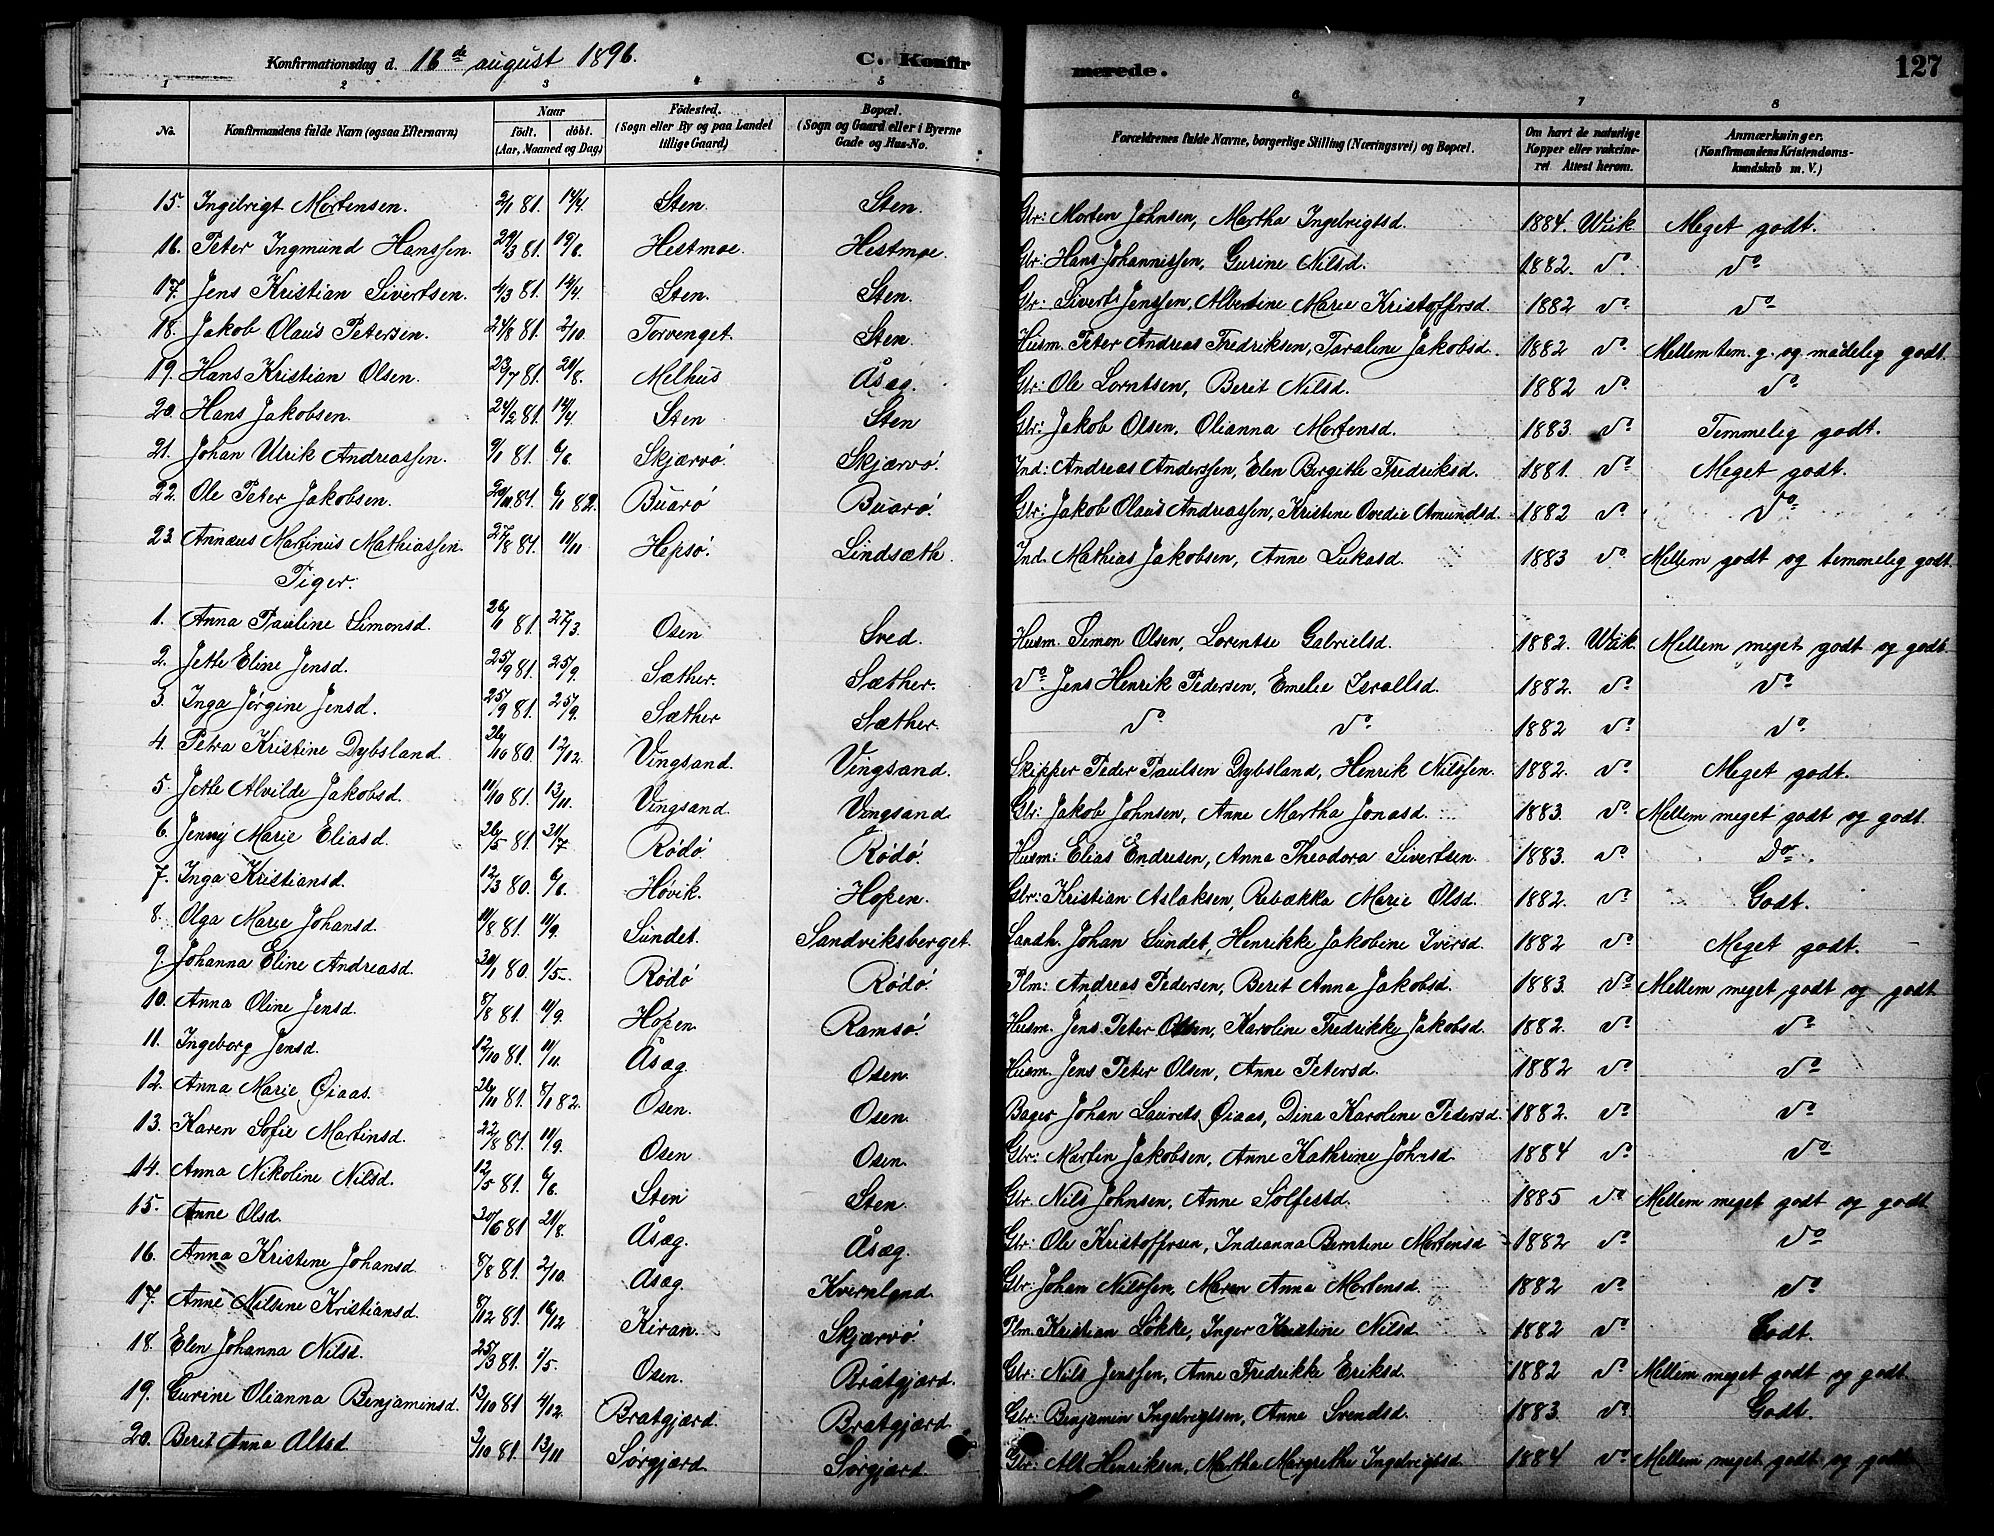 Konfirmationsdag d. 16de august 1896. C. Konfirmerede. 127
1 2 3 4 5 6 7 8
No. Konfirmandens fulde Navn (ogsaa Efternavn) Naar født. døbt. (Aar, Maaned og Dag) Fødested. (Sogn eller By og paa Landet tillige Gaard) Bopæl. (Sogn og Gaard eller i Byerne Gade og Hus-No. Forældrenes fulde Navne, borgerlige Stilling (Næringsvei) og Bopæl. Om havt de naturlige Kopper eller vakcineret. Attest herom. Anmærkninger. (Konfirmandens Kristendomskundskab m. V.)
15. Ingebrigt Mortensen. 2/1 81. 14/4. Sten. Sten. Gbr: Morten Johnsen, Martha Ingebrigtsd. 1884. Wiik Meget godt.
16. Peter Ingmund Hanssen. 29/3 81. 19/6. Hestmoe. Hestmoe. Gbr: Hans Johannissen, Gurine Nilsd. 1882. do do
17. Jens Kristian Sivertsen. 4/3 81. 14/4. Sten. Sten. Gbr: Sivert Jenssen, Albertine Marie Kristoffersd. 1882 do do
18. Jakob Olaus Petersen. 24/8 81. 2/10. Torvenget. Sten. Husm. Peter Andreas Fredriksen, Taraline Jakobsd. 1882 do Mellem tem. g. og mådelig godt.
19. Hans Kristian Olsen. 23/7 81. 21/8. Melhus Åsæg. Gbr: Ole Lorntsen, Berit Nilsd. 1882 do do
20. Hans Jakobsen. 24/2 81. 14/4. Sten Sten Gbr: Jakob Olsen, Olianna Mortensd. 1883. do Temmelig godt.
21. Johan Ulrik Andreassen. 9/1 81. 6/6. Skjærvø Skjærvø. Ind: Andreas Anderssen, Elen Bergithe Fredriksd. 1881. do Meget godt.
22. Ole Peter Jakobsen. 29/10 81. 6/1 82. Buarø Buarø. Gbr: Jakob Olaus Andreassen, Kristine Ovedie Amundsd. 1882 do do
23. Annæus Martinus Mathiassen. 27/8 81. 11/11. Hepsø. Lindsæth. Ind. Mathias Jakobsen, Anne Lukasd. 1883 do Mellem godt og temmelig godt
Piger.
1. Anna Pauline Simonsd. 26/1 81. 27/3. Osen Sved. Husm. Simon Olsen, Lorentse Gabrielsd. 1882. Wiik. Mellem meget godt og godt
2. Jette Eline Jensd. 25/9 81. 25/9. Sæther. Sæther. do. Jens Henrik Pedersen, Emelie Isralsd. 1882. do do
3. Inga Jørgine Jensd. 25/9 81. 25/9. Sæther Sæther. do do 1882 do do
4. Petra Kristine Dybsland. 26/10 80. 12/12. Vingsand. Vingsand. Skipper Peder Paulsen Dybsland, Henrik Nilssen. 1882. do Meget godt.
5. Jette Alvilde Jakobsd. 11/10 81. 13/11. Vingsand. Vingsand Gbr: Jakob Johnsen, Anne Martha Jonasd. 1883. do Mellem meget godt og godt
6. Jenny Marie Eliasd. 26/5 81. 31/7. Rødø. Rødø. Husm: Elias Endresen, Anna Theodora Sivertsen. 1883. do Do.
7. Inga Kristiansd. 12/3 80. 6/6. Høvik. Hopen. Gbr: Kristian Aslaksen, Rebækka Marie Olsd. 1882. do Godt.
8. Olga Marie Johansd. 10/8 81. 11/9. Sundet. Sandviksberget. Landh. Johan Sundet, Henrikke Jakobine Iversd. 1882 do Meget godt.
9. Johanna Eline Andreasd. 30/1 80. 1/5. Rødø Rødø. Plm: Andreas Pedersen, Berit Anna Jakobsd. 1883. do Mellem meget godt og godt
10. Anna Oline Jensd. 8/8 81. 11/9. Hopen Ramsø. Husm. Jens Peter Olsen, Karoline Fredrikke Jakobsd. 1882. do do
11. Ingeborg Jensd. 12/10 81. 11/11. Åsæg. Osen Husm. Jens Peter Olsen, Anne Petersd. 1882 do do
12. Anna Marie Øiaas. 26/11 81. 8/1 82. Osen. Osen Bager Johan Laurets Øiaas, Dina Karoline Pedersd. 1882. do do
13. Karen Sofie Martinsd. 22/8 81. 11/9. Osen Osen Gbr: Martin Jakobsen, Anne Kathrine Johnsd 1884 do do
14. Anna Nikoline Nilsd. 12/5 81. 6/6. Sten Sten Gbr. Nils Johnsen, Anne Solfestd. 1885 do Mellem meget godt og godt
15. Anne Olsd. 30/6 81. 21/8. Åsæg. Åsæg. Gbr: Ole Kristoffersen, Indianna Berntine Mortensd 1882 do do
16. Anna Kristine Johansd. 8/8 81. 2/10. Åsæg Kvernland Gbr: Johan Nilssen, Maren Anna Mortensd. 1882 do do
17. Anne Nilsine Kristiansd. 8/12 81. 18/12 Kiran. Skjærvø Plm. Kristian Løkke, Inger Kristine Nilsd. 1882 do Godt.
18. Elen Johanna Nilsd. 25/3 81. 1/5. Osen. Bratgjærd. Gbr: Nils Jenssen, Anne Fredrikke Eriksd. 1882 do Mellem meget godt og godt
19. Gurine Olianna Benjaminsd. 13/10 81 4/12. Bratgjærd. Bratgjærd Gbr: Benjamin Ingebrigtsen, Anne Svendsd. 1883. do Godt.
20. Berit Anna Altsd 3/10 81. 13/11 Sørgjærd. Sørgjærd. Gbr: Alt Henriksen, Martha Margrethe Ingebrigtsd. 1884 do Mellem meget godt og godt